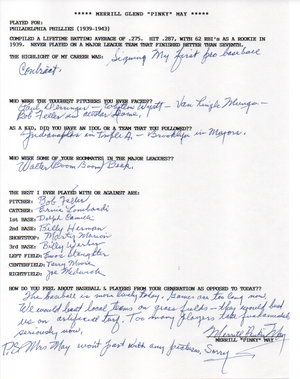 ***** MERRILL GLEND "PINKY" MAY *****
PLAYED FOR:
PHILADELPHIA PHILLIES (1939-1943)
COMPILED A LIFETIME BATTING AVERAGE OF .275. HIT .287, WITH 62 RBI's AS A ROOKIE IN
1939. NEVER PLAYED ON A MAJOR LEAGUE TEAM THAT FINISHED BETTER THAN SEVENTH.
THE HIGHLIGHT OF MY CAREER WAS: Signing My first pro baseball
Contract.
WHO WERE THE TOUGHEST PITCHERS YOU EVER FACED??
Paul Derringer - Whitlow Wyatt - Van Lingle Mungo -
Bob Feller in all star Game.
AS A KID, DID YOU HAVE AN IDOL OR A TEAM THAT YOU FOLLOWED??
Indianapolis in Triple A. - Brooklyn in Majors.
WHO WERE SOME OF YOUR ROOMMATES IN THE MAJOR LEAGUES??
Walter Boom Boom Beck
THE BEST I EVER PLAYED WITH OR AGAINST ARE:
PITCHER: Bob Feller
CATCHER: Ernie Lombardi
1st BASE: Dolph Camilli
2nd BASE: Billy Herman
SHORTSTOP: Marty Marion
3rd BASE: Billy Werber
LEFT FIELD: Enos Slaughter
CENTERFIELD: Terry Moore
RIGHTFIELD: Joe Medwick
HOW DO YOU FEEL ABOUT BASEBALL & PLAYERS FROM YOUR GENERATION AS OPPOSED TO TODAY??
The baseball is more lively today, games are too long now
We would beat local teams on grass fields - they would beat
us on artificial turf. Too many players take fundamentals
seriously now,
Merrill Pinky May
MERRILL "PINKY" MAY
P.S. Mrs May won't part with any pictures, Sorry